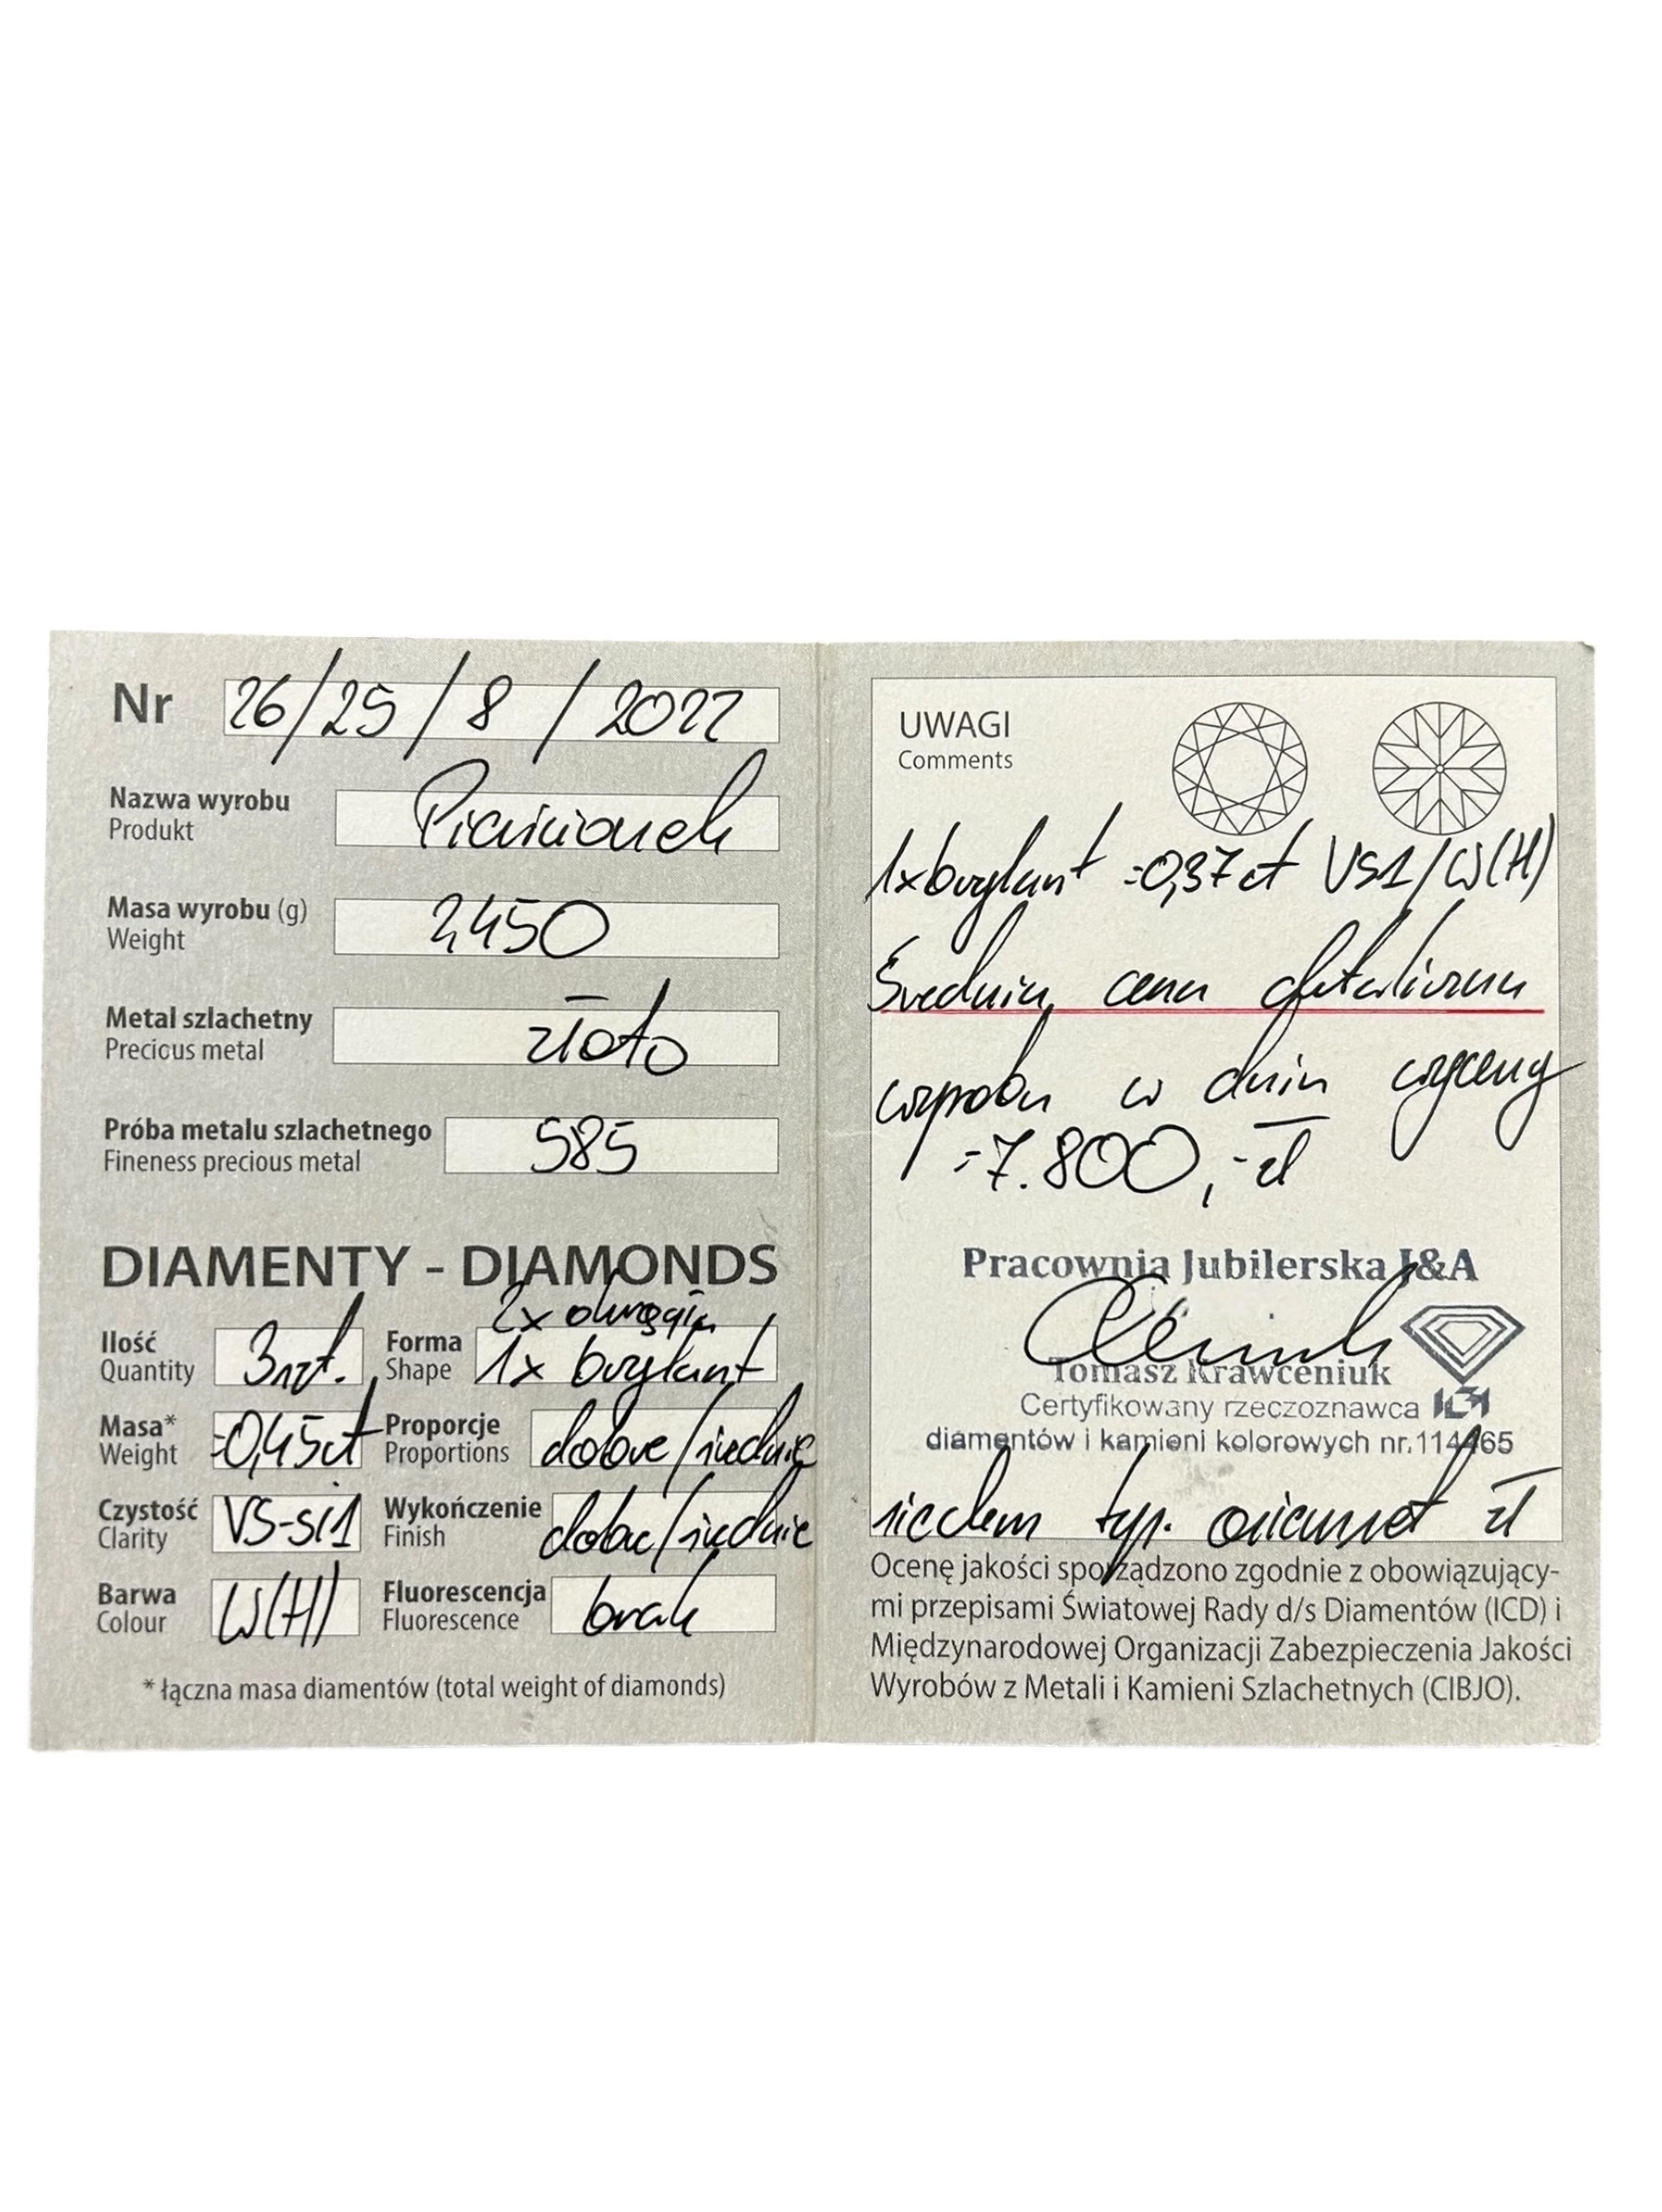 Nr 26/25/8/2022
Nazwa wyrobu
Produkt
Pierścionek
Masa wyrobu (g)
Weight
2,450
Metal szlachetny
Precious metal
złoto
Próba metalu szlachetnego
Fineness precious metal
585
DIAMENTY - DIAMONDS
Ilość
Quantity
3szt.
Forma
Shape
2x okrągła
1x brylant
Masa*
Weight
=0,45ct
Proporcje
Proportions
dobre/średnie
Czystość
Clarity
VS-Si1
Wykończenie
Finish
dobre/średnie
Barwa
Colour
W(H)
Fluorescencja
Fluorescence
brak
* łączna masa diamentów (total weight of diamonds)
UWAGI
Comments
1xbrylant =0,37ct VS1/W(H)
Średnia cena detaliczna
wyrobu w dniu wyceny
=7.800,-zł
Pracownia Jubilerska J&A
Tomasz Krawceniuk
Certyfikowany rzeczoznawca
diamentów i kamieni kolorowych nr.114465
siedem tys. osiemset zł
Ocenę jakości sporządzono zgodnie z obowiązujący-
mi przepisami Światowej Rady d/s Diamentów (ICD) i
Międzynarodowej Organizacji Zabezpieczenia Jakości
Wyrobów z Metali i Kamieni Szlachetnych (CIBJO).